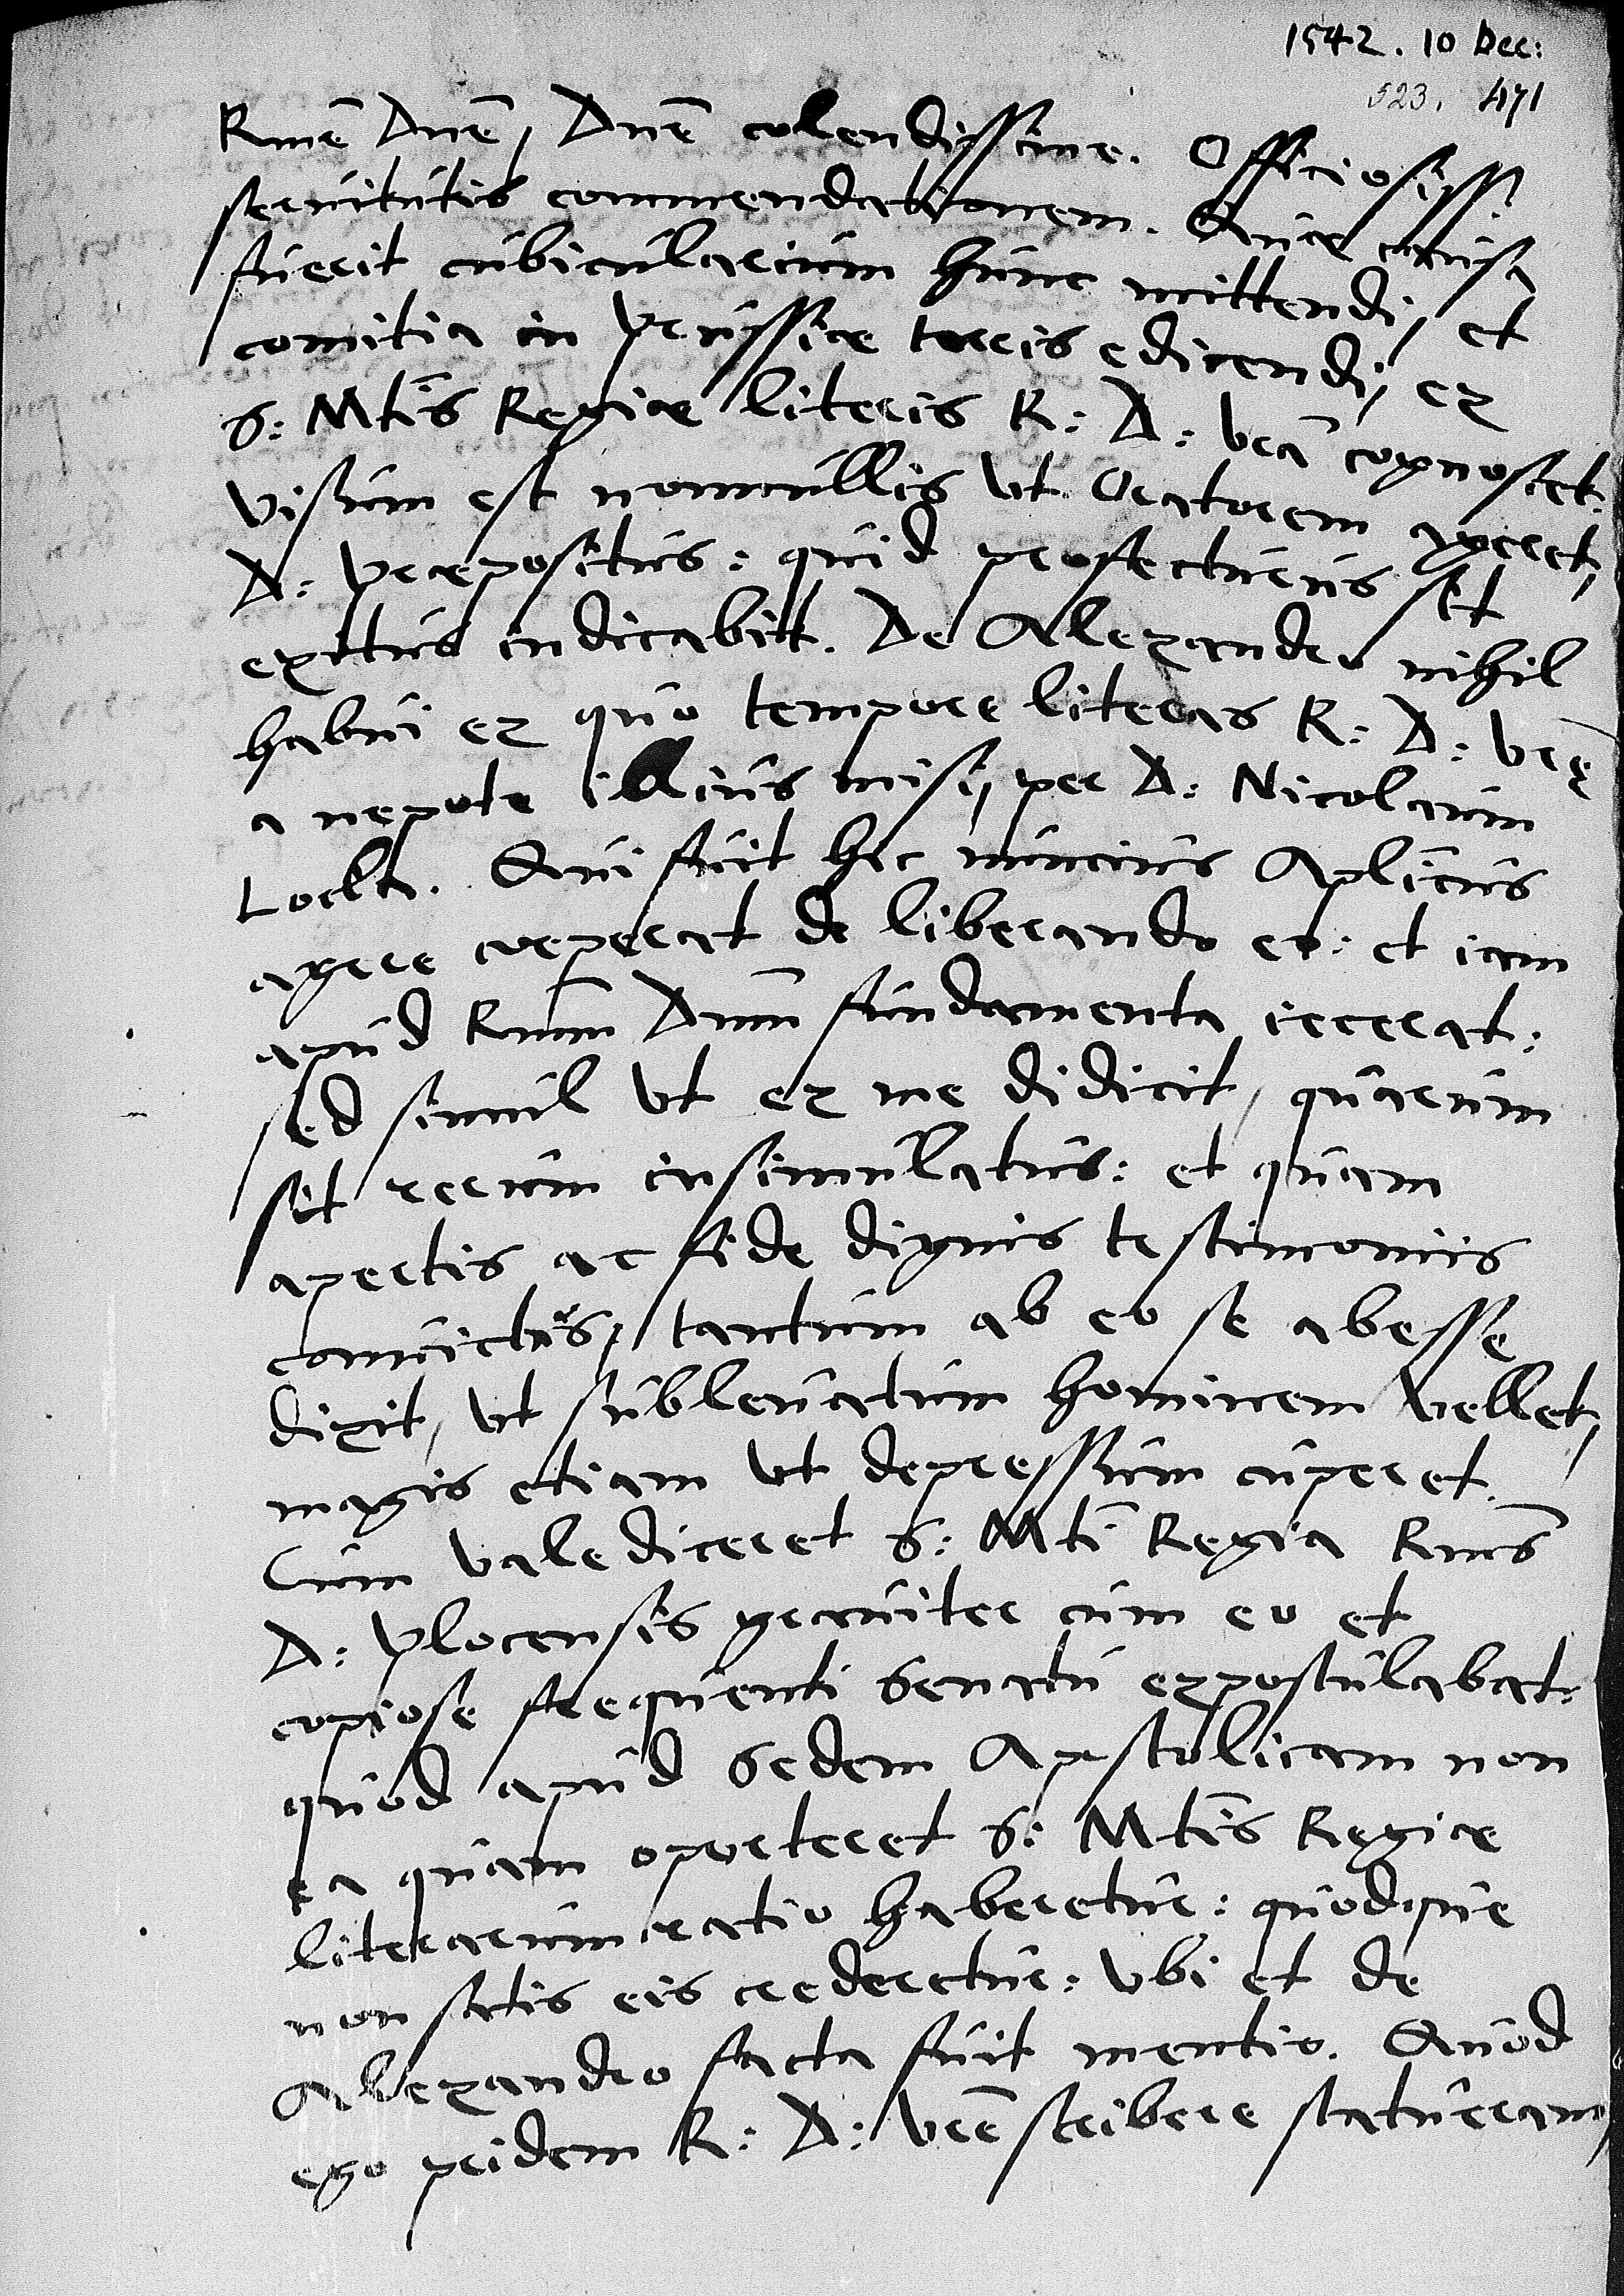 1542. 10 Dec:
523. 471
Rme Dne, Dne colendissime. Officiosiss.
seruitutis commendationem. Quae causa
fuerit cubicularium hunc mittendi, et
comitia in Prussiae terris edicendi, ex
S: Mtis Regiae literis R: D: vra cognoscet.
Visum est nonnullis vt Oratorem ageret,
D: Praepositus: quid profecturus sit
exitus indicabit. De Alexandro nihil
habui ex quo tempore literas R: D: vrę
a nepote illius misi, per D: Nicolaum
Locka. Qui fuit hic nuncius Aplicus
agere coeperat de liberando eo: et iam
apud Rmum Dnum fundamenta iecerat:
sed simul vt ex me didicit, quarum
sit rerum insimulatus: et quam
apertis ac fide dignis testimoniis
conuictus, tantum ab eo se abesse
dixit, vt subleuatum hominem vellet,
magis etiam vt depressum cuperet.
Cum valediceret S: Mti Regia Rmus
D: Plocensis grauiter cum eo et
copiose frequenti Senatu expostulabat.
quod apud Sedem Apostolicam non
ea quam oporteret S: Mtis Regiae
literarum ratio haberetur: quodque
non satis eis crederetur: vbi et de
Alexandro facta fuit mentio. Quod
ego pridem R: D: vre scribere statueram,